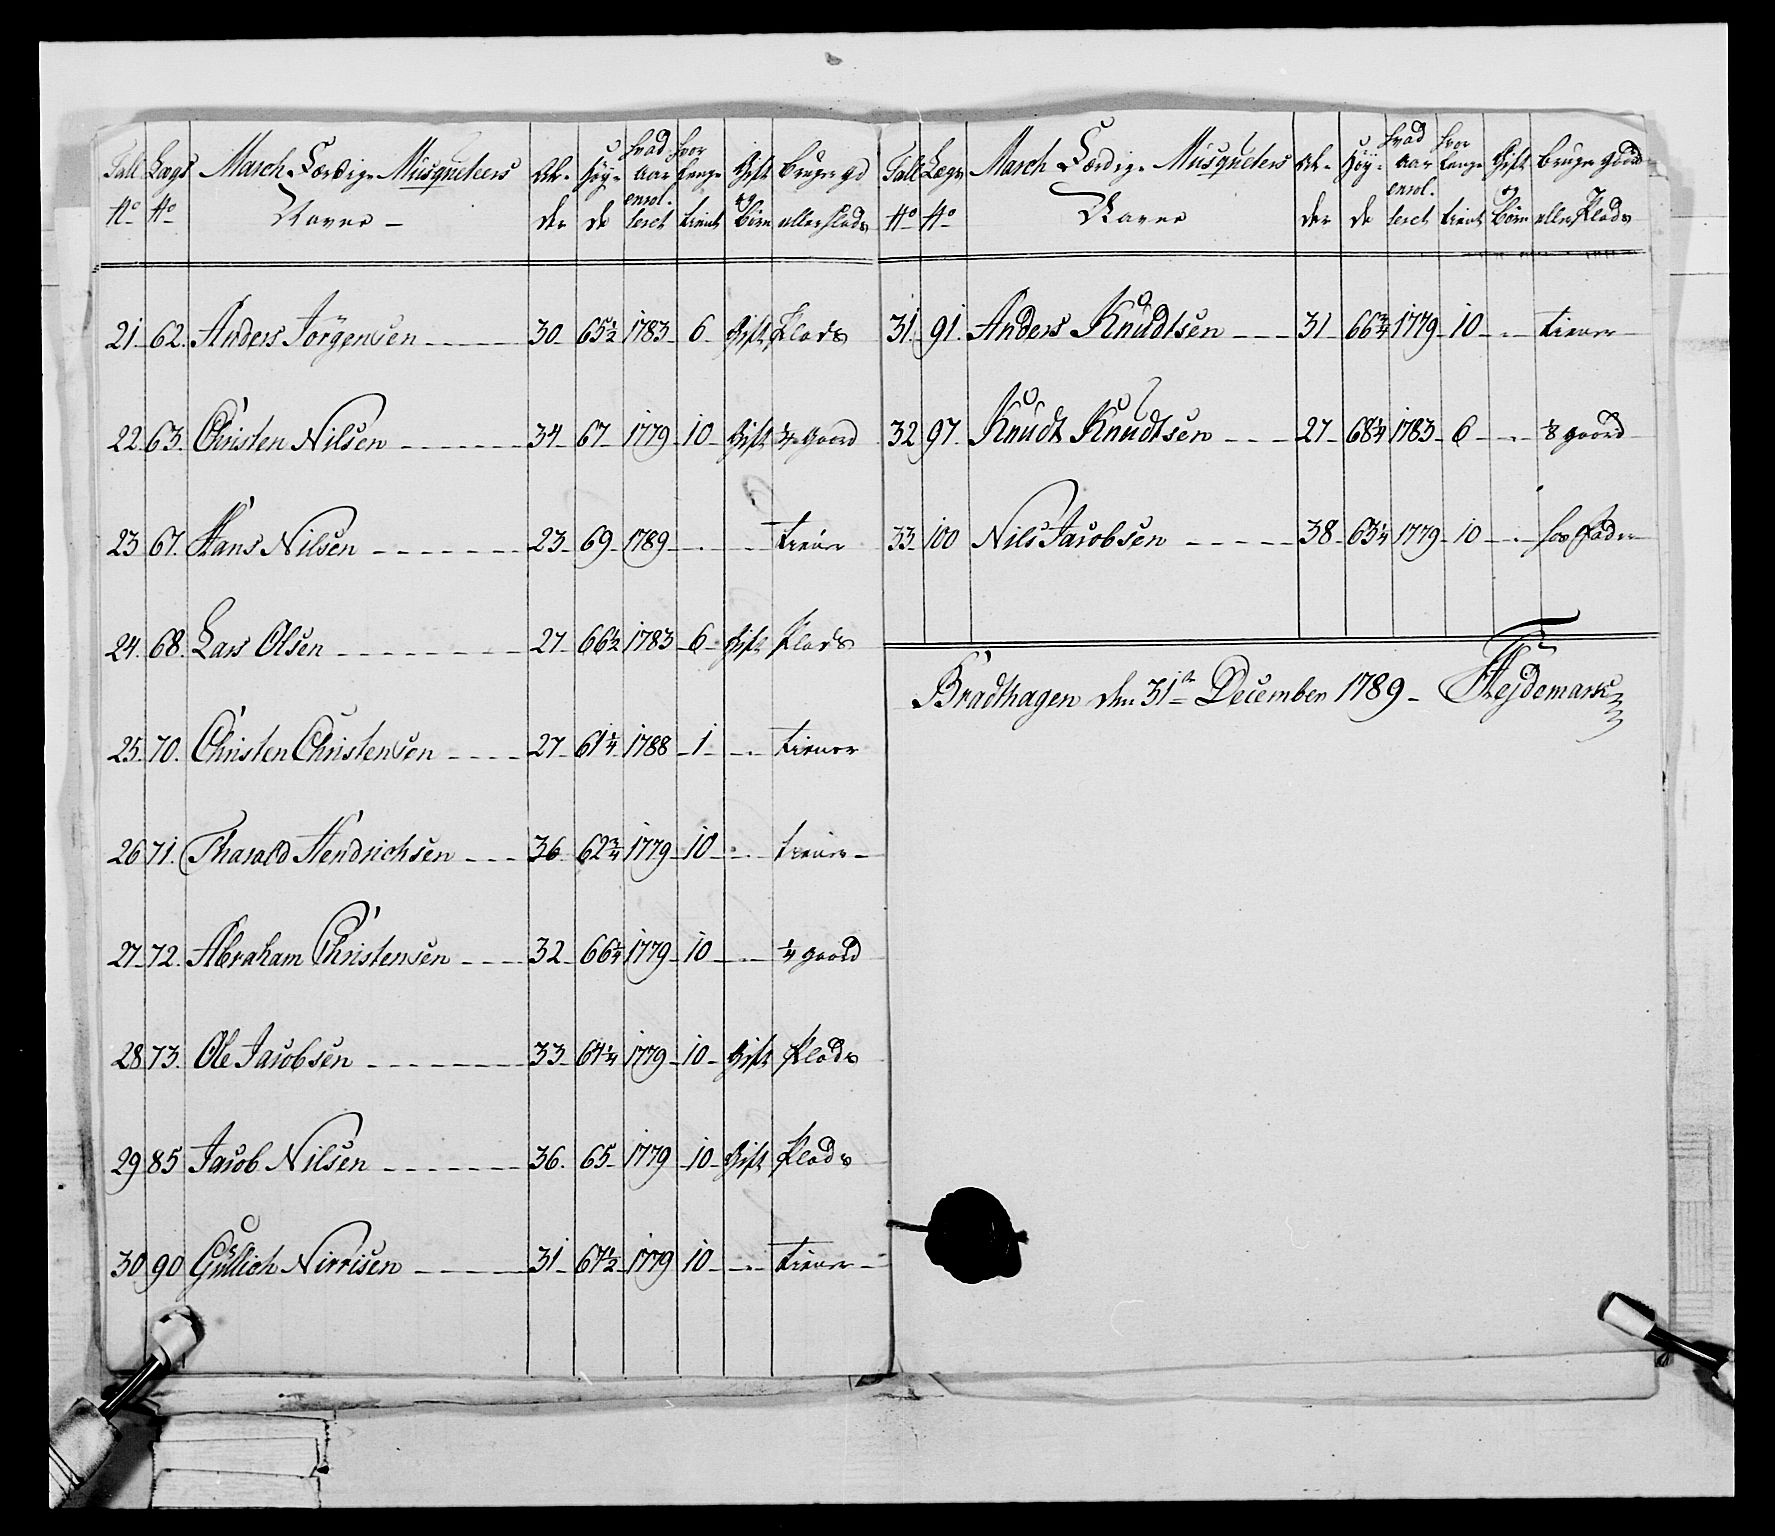 Tall No Lægs No March Færdige Musqueteers Navne Al- der Høy- de hvad aar enrol- leret hvor lenge tient Gift og Børn bruger gd eller Plads
21 62. Anders Jörgensen 30 65½ 1783 6 Gift Plads
22 63. Christen Nilsen 34 67 1779 10 Gift gaard
23 67. Hans Nilsen 23 69 1789 tiener
24. 68. Lars Olsen 27 66½ 1783 6 Gift Plads
25. 70. Christen Christensen 27 61¼ 1788 1 tiener
26 71. Tharald Hendrichsen 36 62¾ 1779 10 tiener
27 72. Abraham Christensen 32 66¼ 1779 10 ¼ gaard
28 73. Ole Jacobsen 33 67¼ 1779 10 Gift Plads
29 85 Jacob Nilsen 36 65 1779 10 Gift Plads
30 90 Gullich Nirrisen 31 67½ 1779 10 tiener
Tall No Lægs No March Færdige Musqueters Navne Al- der Høy- de hvad aar enrol- leret hvor lenge tient Gift og Børn bruger gaard eller Plads
31. 91. Anders Knudtsen 31 66¾ 1779 10 tiener
32 97. Knudt Knudtsen 27 68¼ 1783 6 ⅛ gaard
33 100 Nils Jacobsen 38 63¼ 1779 10 hos fader
Bradhagen den 31te December 1789 Hejdemark